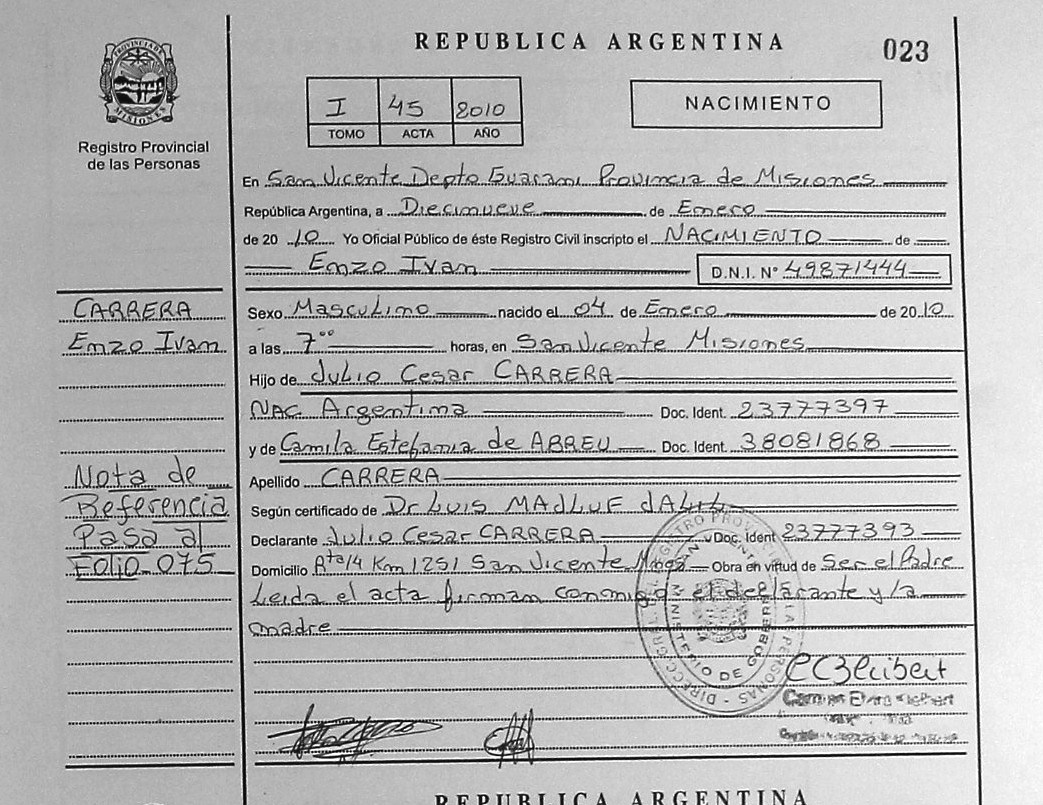 REPUBLICA ARGENTINA
023
PROVINCIA DE MISIONES
Registro Provincial
de las Personas
I 45 2010
TOMO ACTA AÑO
NACIMIENTO
En San Vicente Depto Guarani Provincia de Misiones
República Argentina, a Diecinueve de Enero
de 20 10 Yo Oficial Público de éste Registro Civil inscripto el NACIMIENTO de
Enzo Ivan D.N.I. N° 49871444
CARRERA
Enzo Ivan
Nota de
Referencia
Pasa al
Folio 075
Sexo Masculino nacido el 04 de Enero de 20 10
a las 7°° horas, en San Vicente Misiones
Hijo de Julio Cesar CARRERA
Nac Argentina Doc. Ident. 23777397
y de Camila Estefania de ABREU Doc. Ident. 38081868
Apellido CARRERA
Según certificado de Dr Luis MADLUF dALIL
Declarante Julio Cesar CARRERA Doc. Ident 23777393
Domicilio Rta 14 Km 1251 San Vicente Mnes Obra en virtud de Ser el Padre
Leida el acta firman conmigo el declarante y la
madre
REPUBLICA ARGENTINA